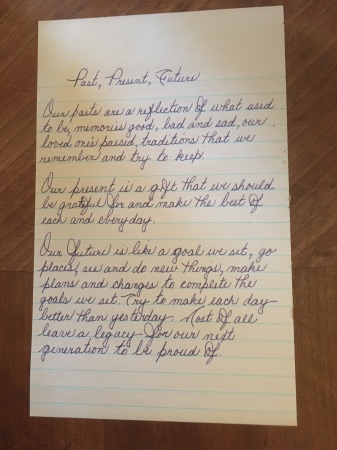 Past, Present, Future
Our pasts are a reflection of what used
to be, memories good, bad and sad, our
loved one's passid, traditions that we
remember and try to keep.
Our present is a gift that we should
be grateful for and make the best of
each and everyday.
Our future is like a goal we set, go
places, see and do new things, make
plans and changes to complete the
goals we set. Try to make each day
better than yesterday. Most of all
leave a legacy for our next
generation to be proud of.